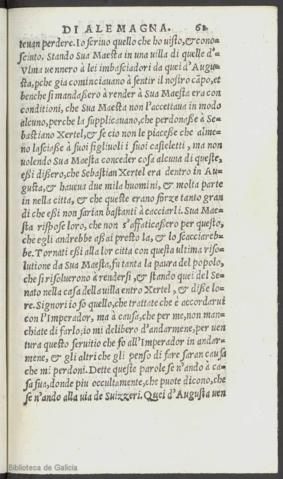 DI ALEMAGNA. 62
teuan perdere. Io scriuo quello che ho uisto, & cono-
sciuto. Stando Sua Maestà in una uilla di quelle d'-
Vlma uennero à lei imbasciadori da quei d'Augu-
sta, pche gia cominciauano à sentir il nostro cāpo, et
benche si mandaßero à render à Sua Maestà era con
conditioni, che Sua Maestà non l'accettaua in modo
alcuno, perche la supplicauano, che perdonaße à Se-
bastiano Xertel, & se cio non le piaceße che alme-
no lasciaße à suoi figliuoli i suoi castelletti, ma non
uolendo Sua Maestà conceder cosa alcuna di queste,
eßi dißero, che Sebastian Xertel era dentro in Au-
gusta, & haueua due mila huomini, & molta parte
in nella citta, & che queste erano forze tanto gran
di che eßi non sarian bastanti à cacciarli. Sua Mae-
stà rispose loro, che non s'affaticaßero per questo,
che egli andrebbe aßai presto la, & lo scacciareb-
be. Tornati eßi alla lor citta con questa ultima riso-
lutione da Sua Maestà, fu tanta la paura del popolo,
che si risoluerono à rendersi, & stando quei del Se-
nato nella casa della uilla entro Xertel, & diße lo-
re. Signori io so quello, che trattate che è accordarui
con l'Imperador, ma à causa, che per me, non man-
chiate di farlo, io mi delibero d'andarmene, per uen
tura questo seruitio che fo all'Imperador in andar-
mene, & gli altri che gli penso di fare saran causa
che mi perdoni. Dette queste parole se n'andò à ca-
sa sua, donde piu occultamente, che puote dicono, che
se n'ando alla uia de Suizzeri. Quei d'Augusta uen
Biblioteca de Galicia